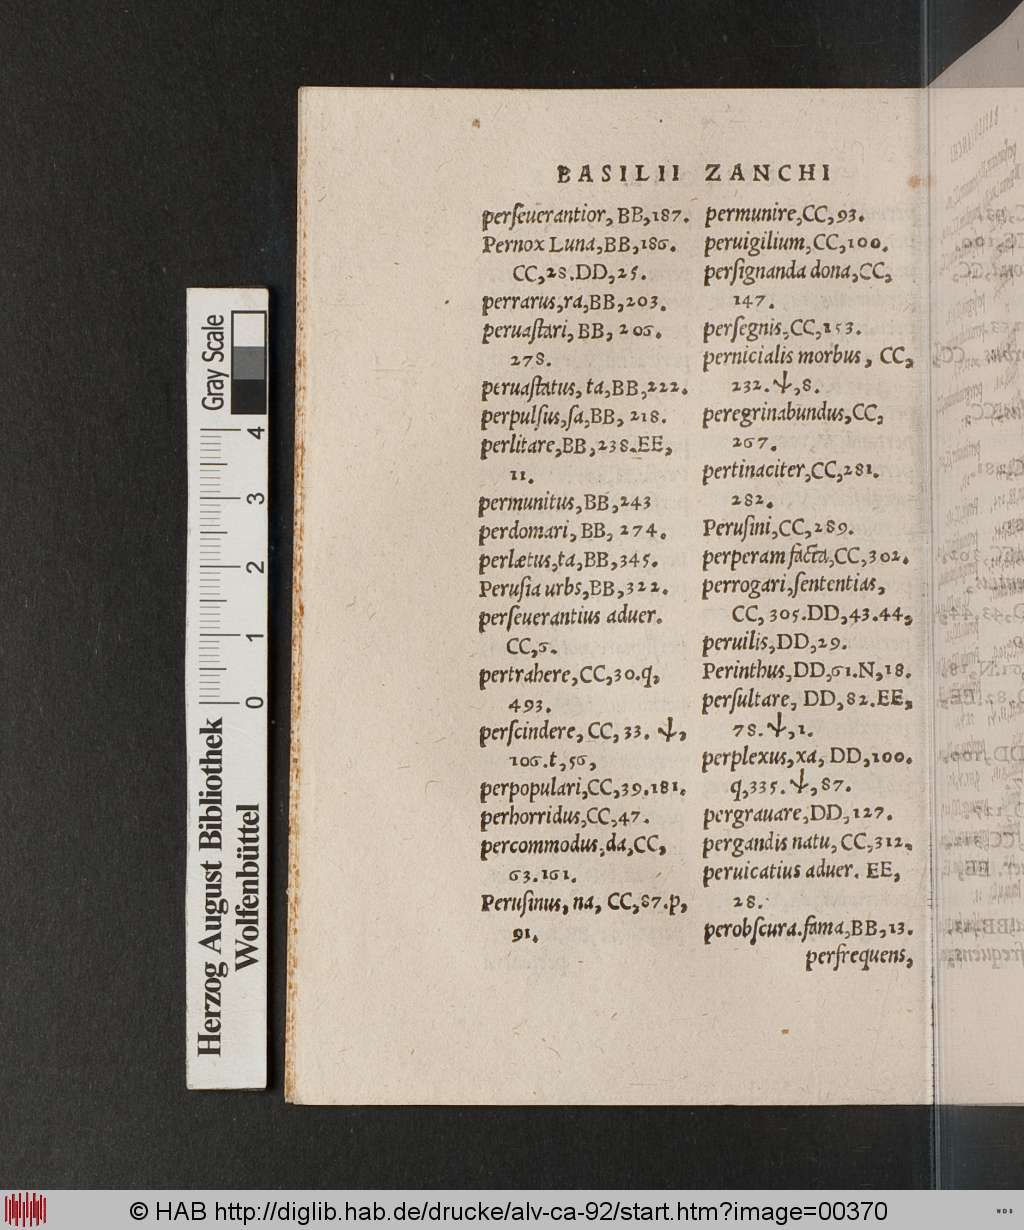 BASILII ZANCHI
perſeuerantior, BB,187.
Pernox Luna,BB,186.
CC,28.DD,25.
perrarus,ra,BB,203.
peruaſtari, BB, 206.
278.
peruaſtatus, ta,BB,222.
perpulſus,ſa,BB, 218.
perlitare,BB,238.EE,
11.
permunitus,BB,243
perdomari, BB, 274.
perlætus,ta,BB,345.
Peruſia urbs,BB,322.
perſeuerantius aduer.
CC,6.
pertrahere,CC,30.q,
493.
perſcindere, CC, 33. ↓,
106.t,56,
perpopulari,CC,39.181.
perhorridus,CC,47.
percommodus,da,CC,
63.161.
Peruſinus, na, CC,87.p,
91.
permunire,CC,93.
peruigilium,CC,100.
perſignanda dona,CC,
147.
perſegnis,CC,153.
pernicialis morbus, CC,
232.↓,8.
peregrinabundus,CC,
267.
pertinaciter,CC,281.
282.
Peruſini,CC,289.
perperam facta,CC,302.
perrogari,ſententias,
CC,305.DD,43.44,
peruilis,DD,29.
Perinthus,DD,61.N,18.
perſultare, DD,82.EE,
78.↓,1.
perplexus,xa, DD,100.
q,335.↓,87.
pergrauare,DD,127.
pergandis natu, CC,312.
peruicatius aduer. EE,
28.
perobſcura.fama,BB,13.
perfrequens,
Gray Scale
0 1 2 3 4
Herzog August Bibliothek
Wolfenbüttel
© HAB http://diglib.hab.de/drucke/alv-ca-92/start.htm?image=00370